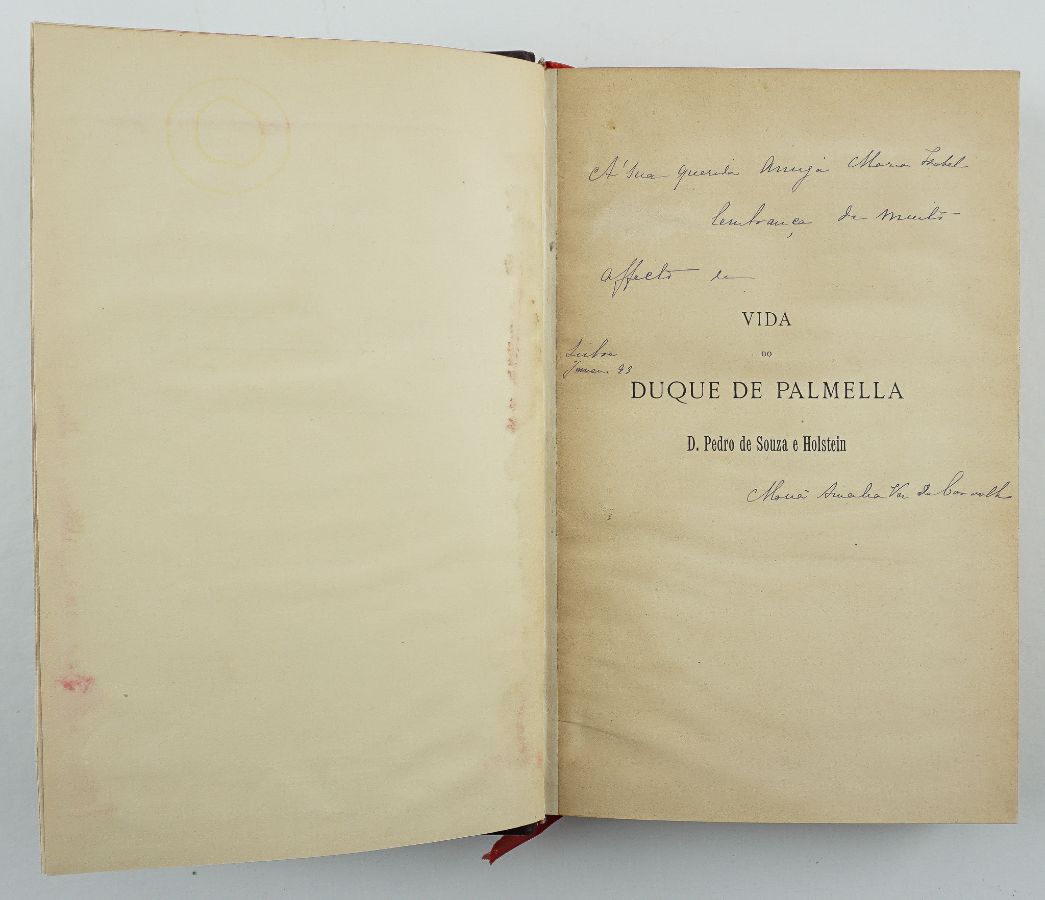 Á sua querida Amiga Maria Isabel
lembrança de muito
affecto de
VIDA
DO
Lisboa
93
DUQUE DE PALMELLA
D. Pedro de Souza e Holstein
Maria Amalia Vaz de Carvalho